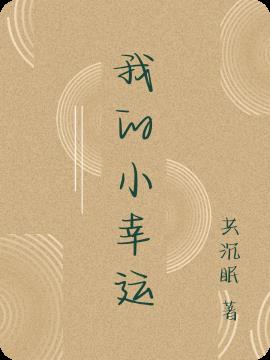 我的小幸运
共沉眠 著